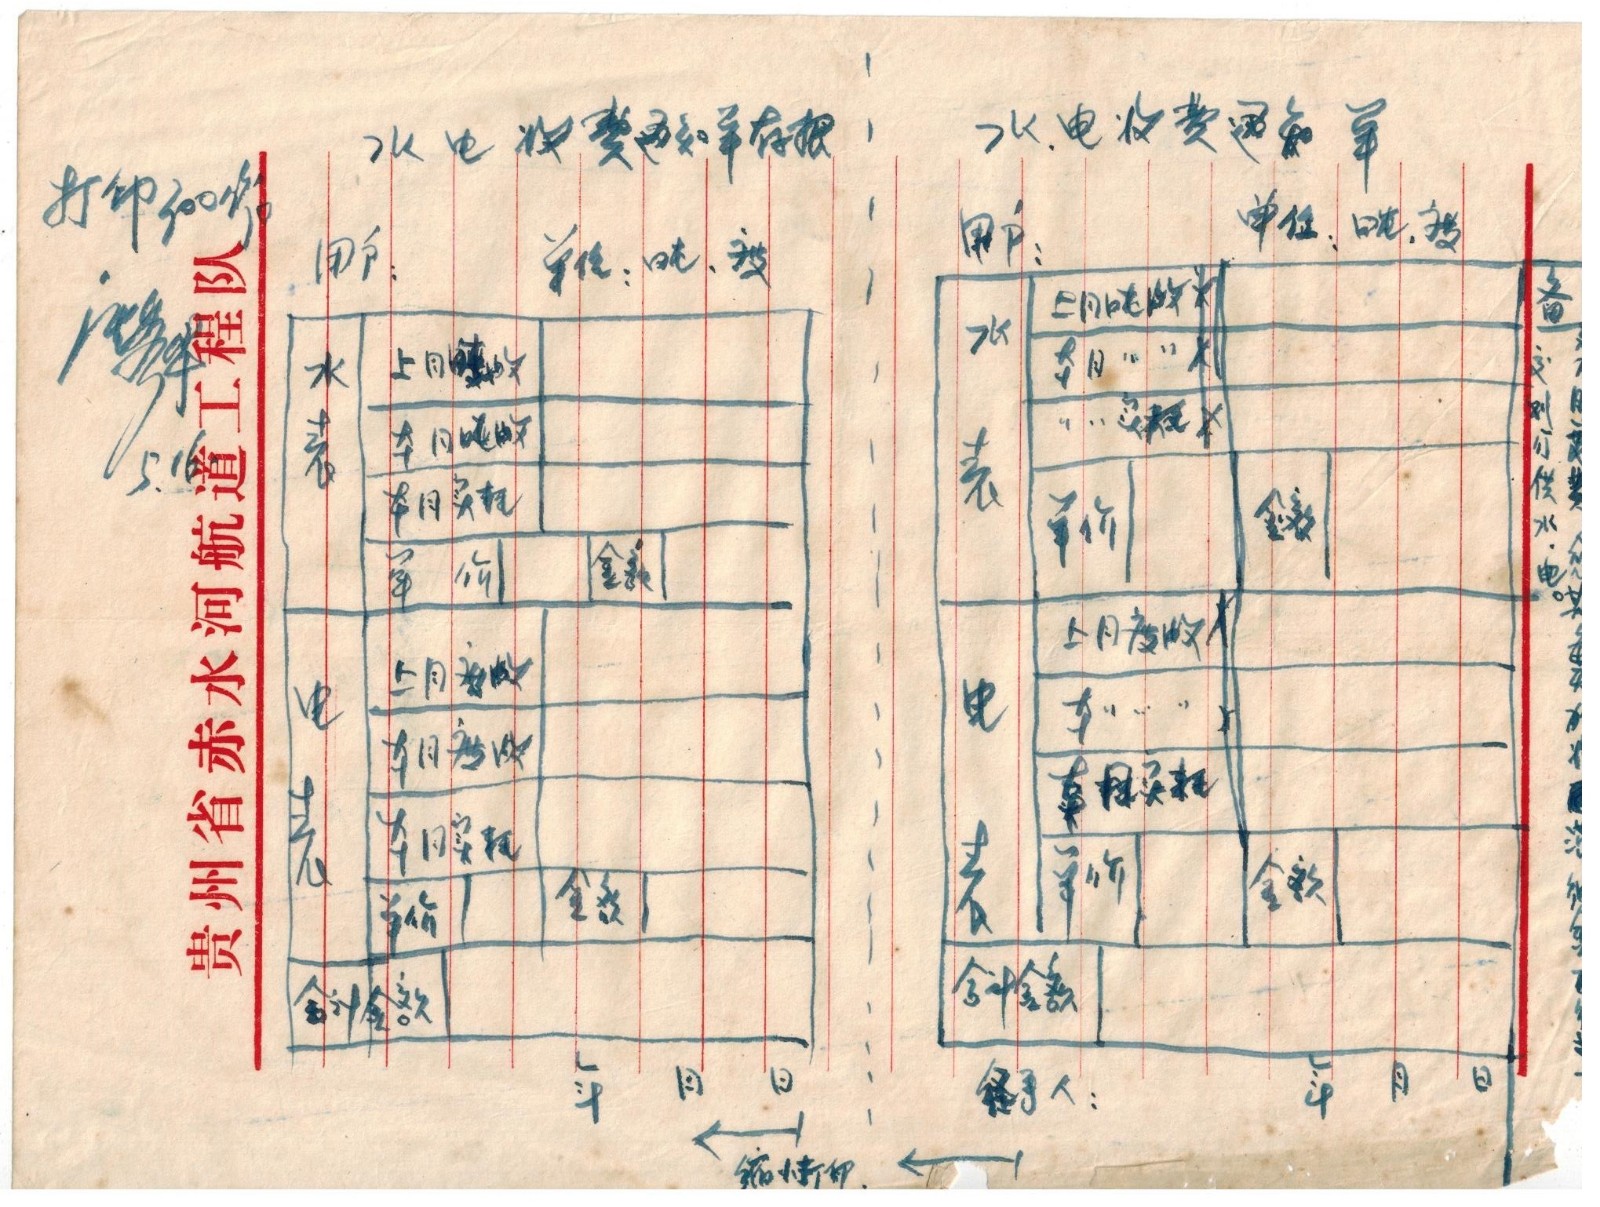 水电收费通知单存根
打印500份
5.16
贵州省赤水河航道工程队
用户: 单位:吨、度
水表
上月吨收
本月吨收
本月实耗
单价 金额
电表
上月度收
本月度收
本月实耗
单价 金额
合计金额
年 月 日
缩小打印.
水、电收费通知单
用户: 单位:吨、度
水表
上月吨收
本月〃〃
〃〃实耗
单价 金额
电表
上月度收
本〃〃〃
本月实耗
单价 金额
合计金额
经手人: 年 月 日
备
供水、电。